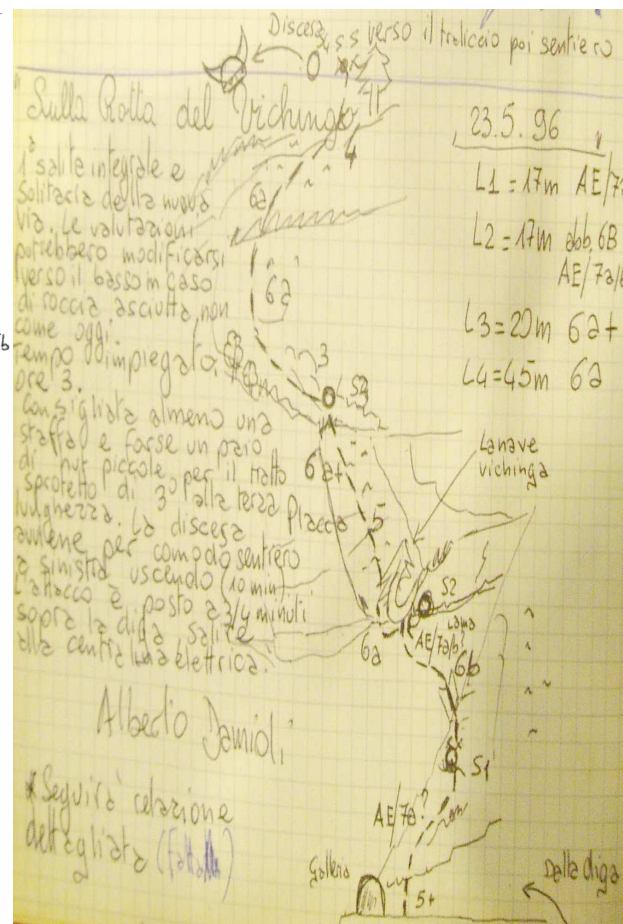 Discesa
S4 S S verso il traliccio poi sentiero
"Sulla Rotta del Vichingo"
23.5.96
1ª salita integrale e
Solitaria della nuova
via. Le valutazioni
potrebbero modificarsi
verso il basso in caso
di roccia asciutta, non
come oggi.
Tempo impiegato,
ore 3.
Consigliata almeno una
staffa e forse un paio
di nut piccole per il tratto
sprotetto di 3° alla terza
lunghezza. La discesa
avviene per comodo sentiero
a sinistra uscendo (10 min).
L'attacco è posto a 3/4 minuti
sopra la diga salire
alla centralina elettrica.
Alberto Damioli
* Seguirà relazione
dettagliata (Fatta)
L1 = 17m AE/7a
L2 = 17m abb. 6B
AE/7a/b
L3 = 20m 6a+
L4 = 45m 6a
4
6a
6a
3
S3
6a+
Placca
5
La nave
vichinga
S2
Lama
6a
AE/7a/b?
6b
S1
AE/7a?
Galleria
5+
Dalla diga